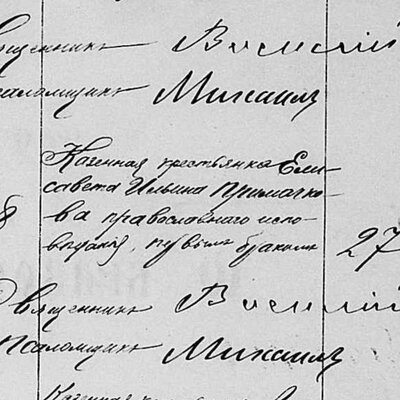 Священникъ Василій
Псаломщикъ Михаилъ
Казенная крестьянка Ели-
савета Ильина Примачко-
8 ва православнаго испо-
вѣданія, первымъ бракомъ 27
Священникъ Василій
Псаломщикъ Михаилъ
Казенная